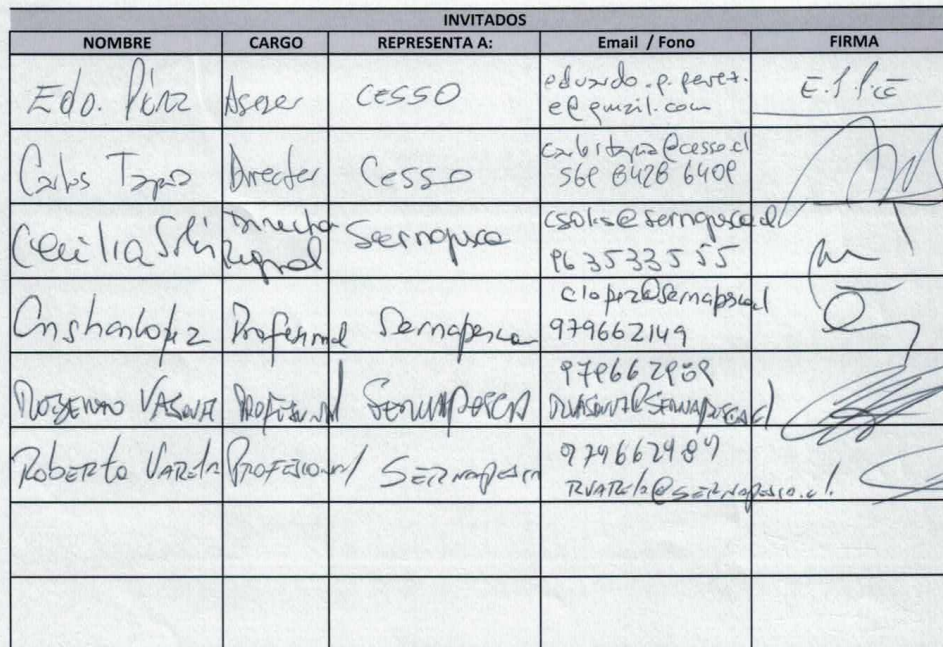 INVITADOS
NOMBRE CARGO REPRESENTA A: Email / Fono FIRMA
Edo. Pérez Asesor CESSO eduardo.p.perez.
e@gmail.com
Carlos Tapia Director Cesso carlostapia@cesso.cl
569 8428 6409
Cecilia Solis Directora Sernapesca csolis@sernapesca.cl
Regional 96 3533555
Cristian Lopez Profesional Sernapesca clopez@sernapesca.cl
979662149
VASQUEZ PROFESIONAL SERNAPESCA
Roberto Varela PROFESIONAL SERNAPESCA 979662989
RVARELA@SERNAPESCA.cl.